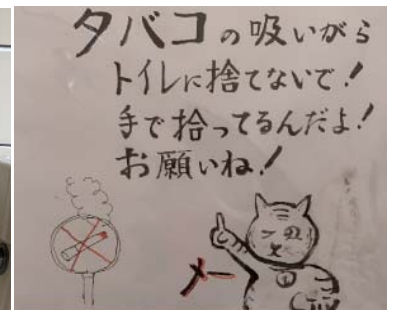 タバコの吸いがら
トイレに捨てないで!
手で拾ってるんだよ!
お願いね!
メー